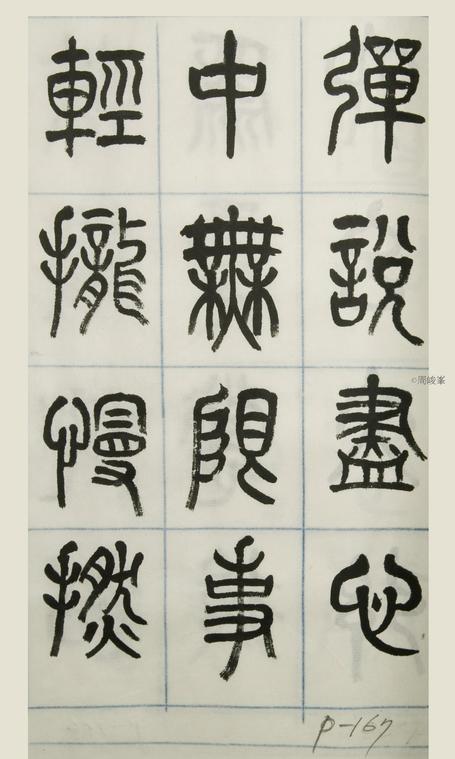 彈說盡心
中無限事
輕攏慢撚
©周峻峯
P-167